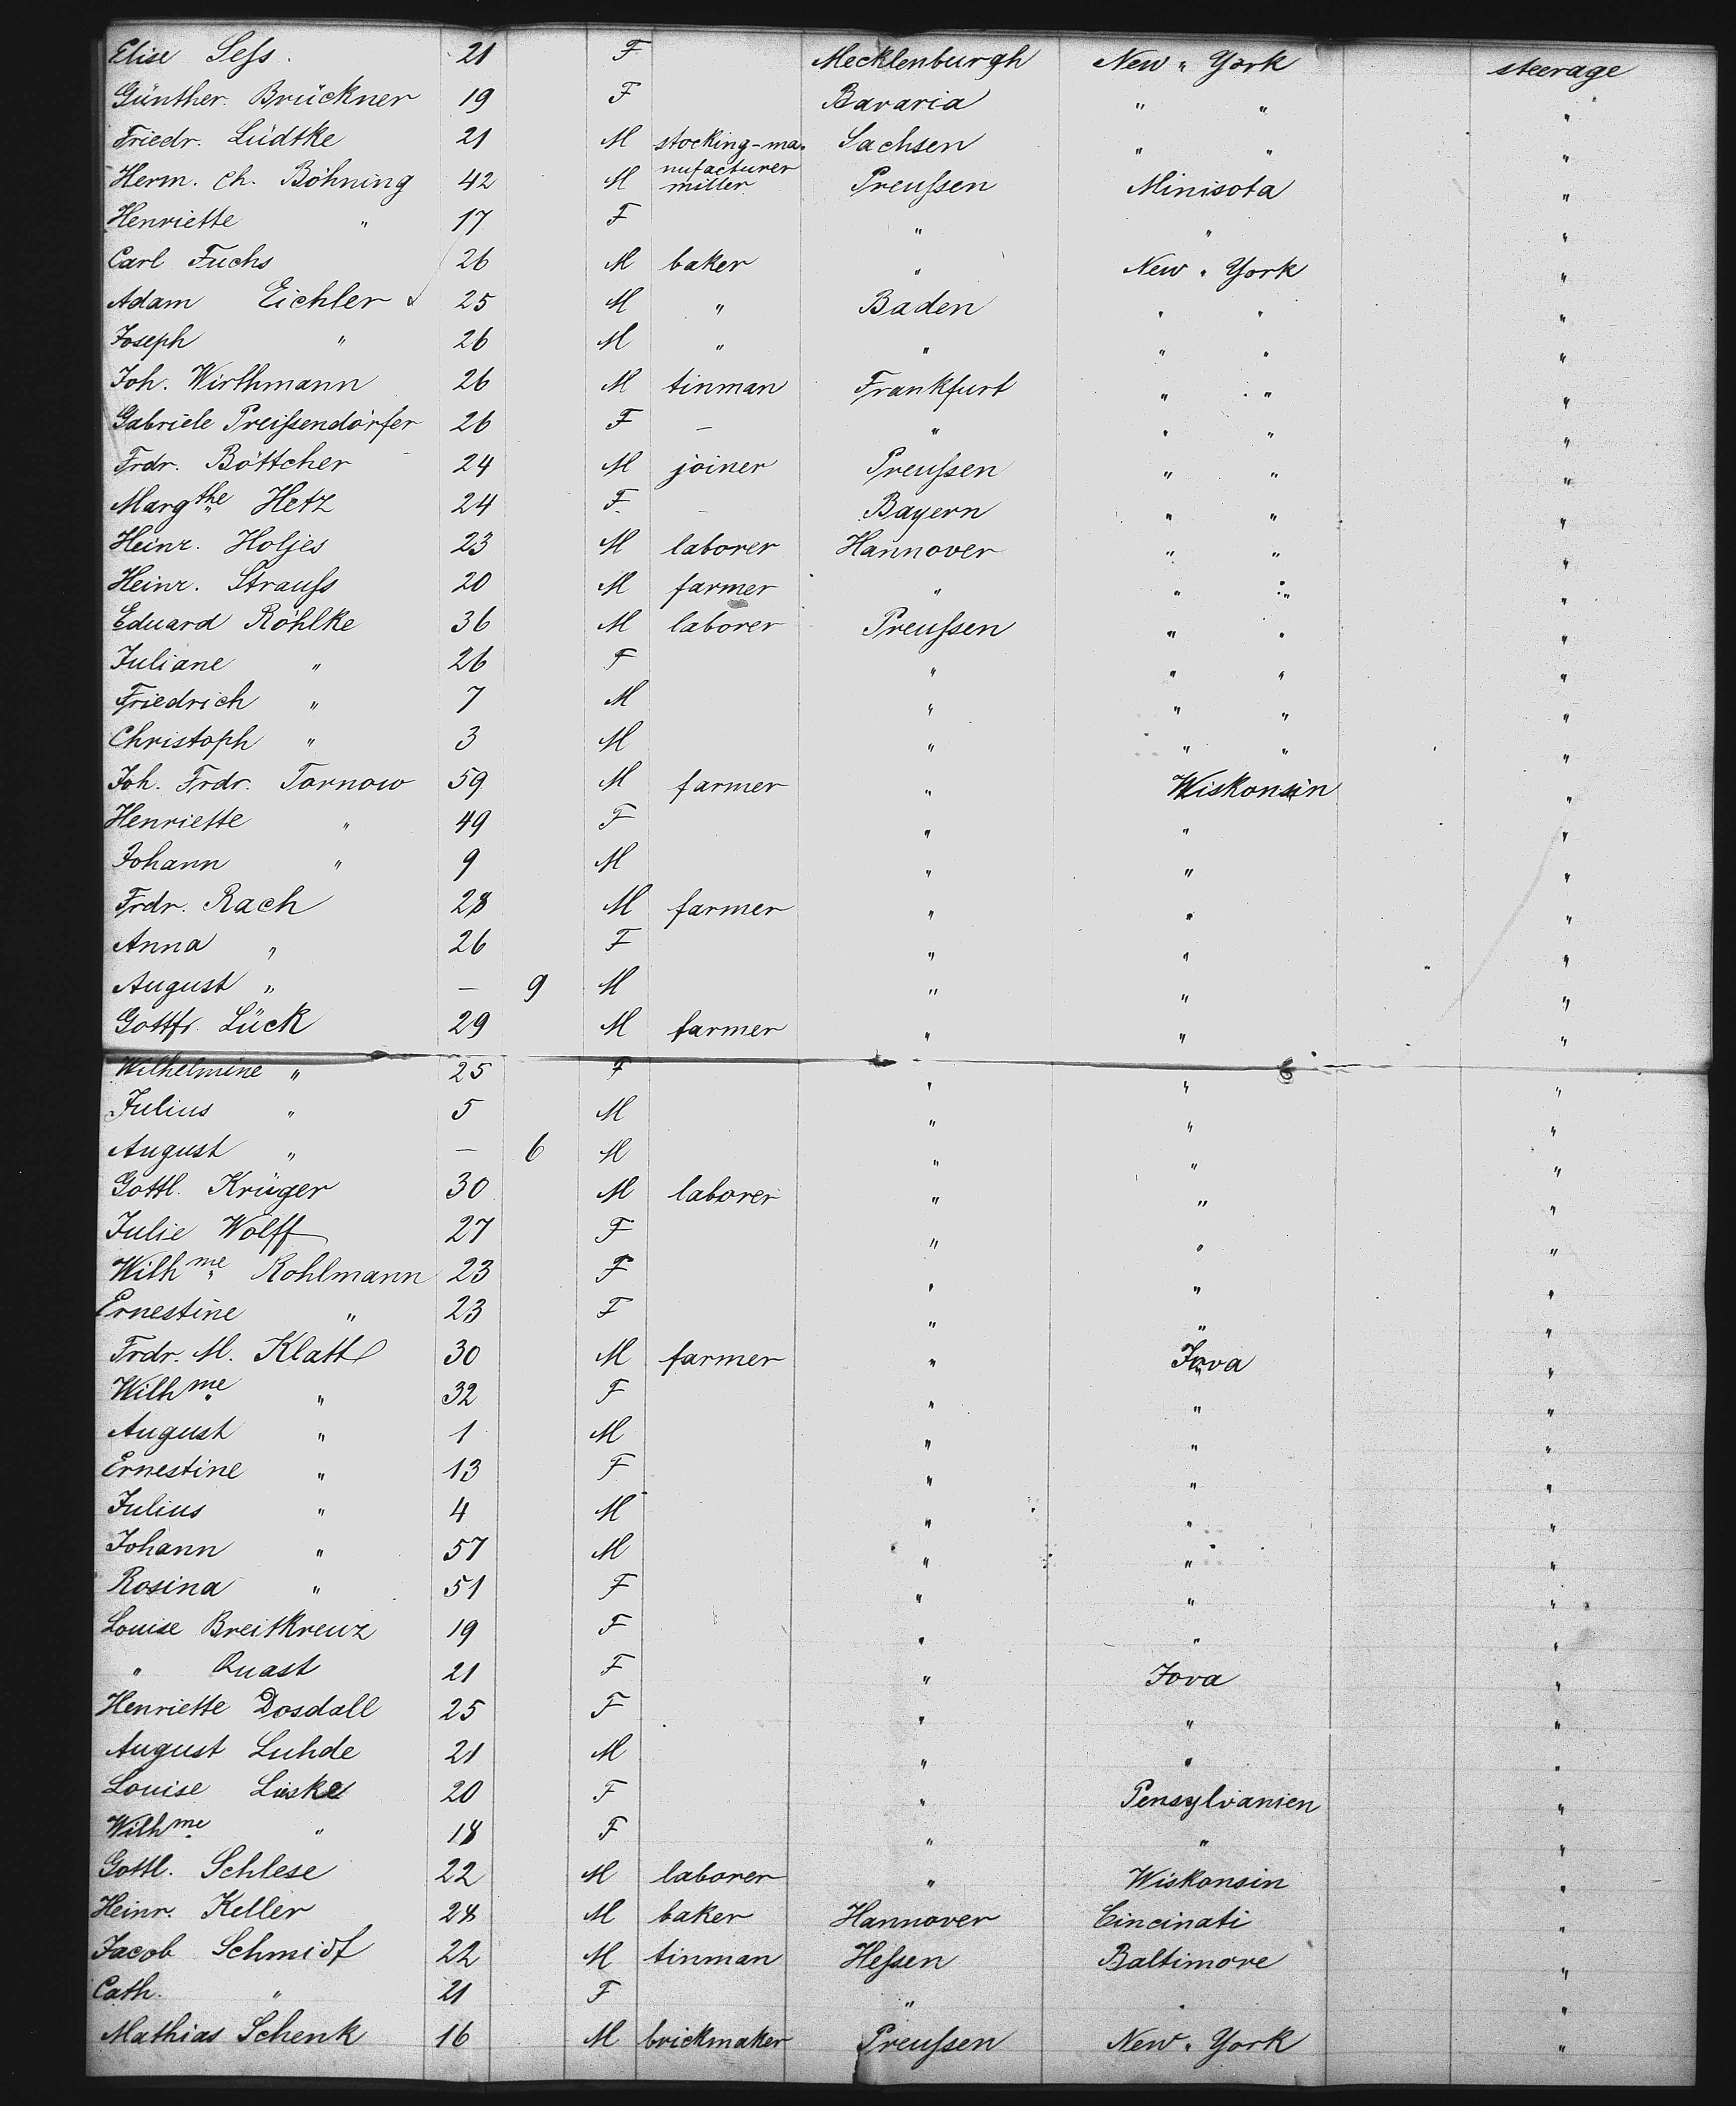 Elise Seſs. 21 F Mecklenburgh New " York steerage
Günther. Brückner 19 F Bavaria " " "
Friedr. Lüdtke 21 M stocking-ma- Sachsen " " "
nufacturer
Herm. Ch. Böhning 42 M miller Preuſsen Minisota "
Henriette " 17 F " " "
Carl Fuchs 26 M baker " New " York "
Adam Eichler 25 M " Baden " " "
Joseph " 26 M " " " " "
Joh. Wirthmann 26 M tinman Frankfurt " " "
Gabriele Preiſsendörfer 26 F — " " " "
Frdr. Böttcher 24 M joiner Preuſsen " " "
Margthe Hetz 24 F — Bayern " " "
Heinr. Holjes 23 M laborer Hannover " " "
Heinr. Strauſs 20 M farmer " " " "
Eduard Röhlke 36 M laborer Preuſsen " " "
Juliane " 26 F " " " "
Friedrich " 7 M " " " "
Christoph " 3 M " " " "
Joh. Frdr. Tornow 59 M farmer " Wiskonsin "
Henriette " 49 F " " "
Johann " 9 M " " "
Frdr. Rach 28 M farmer " " "
Anna " 26 F " " "
August " — 9 M " " "
Gottfr. Lück 29 M farmer " " "
Wilhelmine " 25 F " " "
Julius " 5 M " " "
August " — 6 M " " "
Gottl. Krüger 30 M laborer " " "
Julie Wolff 27 F " " "
Wilhme Kohlmann 23 F " " "
Ernestine " 23 F " " "
Frdr. M. Klatt 30 M farmer " Jova "
Wilhme " 32 F " " "
August " 1 M " " "
Ernestine " 13 F " " "
Julius " 4 M " " "
Johann " 57 M " " "
Rosina " 51 F " " "
Louise Breitkreuz 19 F " " "
" Quast 21 F " Jova "
Henriette Dosdall 25 F " " "
August Luhde 21 M " " "
Louise Lüske 20 F " Pensylvanien "
Wilhme " 18 F " " "
Gottl. Schlese 22 M laborer " Wiskonsin "
Heinr. Keller 28 M baker Hannover Cincinati "
Jacob Schmidt 22 M tinman Heſsen Baltimore "
Cath. " 21 F " " "
Mathias Schenk 16 M brickmaker Preuſsen New " York "